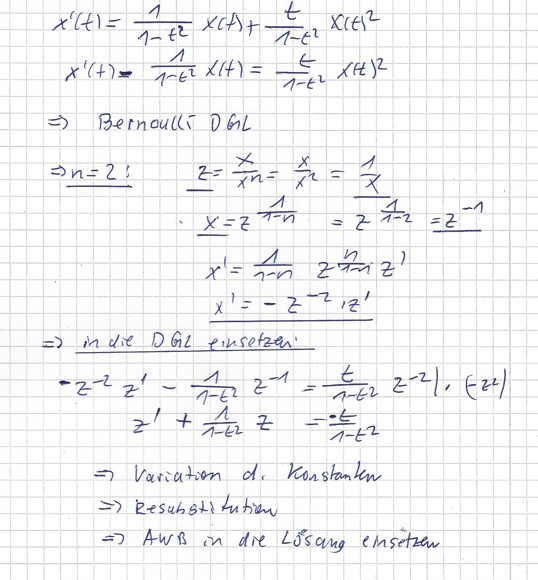 x'(t) = 1/(1-t²) x(t) + t/(1-t²) x(t)²
x'(t) - 1/(1-t²) x(t) = t/(1-t²) x(t)²
⇒ Bernoulli DGL
⇒ n=2: z = x/xⁿ = x/x² = 1/x
x = z^(1/(1-n)) = z^(1/(1-2)) = z⁻¹
x' = 1/(1-n) z^(n/(1-n)) z'
x' = - z⁻² · z'
⇒ in die DGL einsetzen:
-z⁻² z' - 1/(1-t²) z⁻¹ = t/(1-t²) z⁻² | · (-z²)
z' + 1/(1-t²) z = -t/(1-t²)
⇒ Variation d. Konstanten
⇒ Resubstitution
⇒ AWB in die Lösung einsetzen